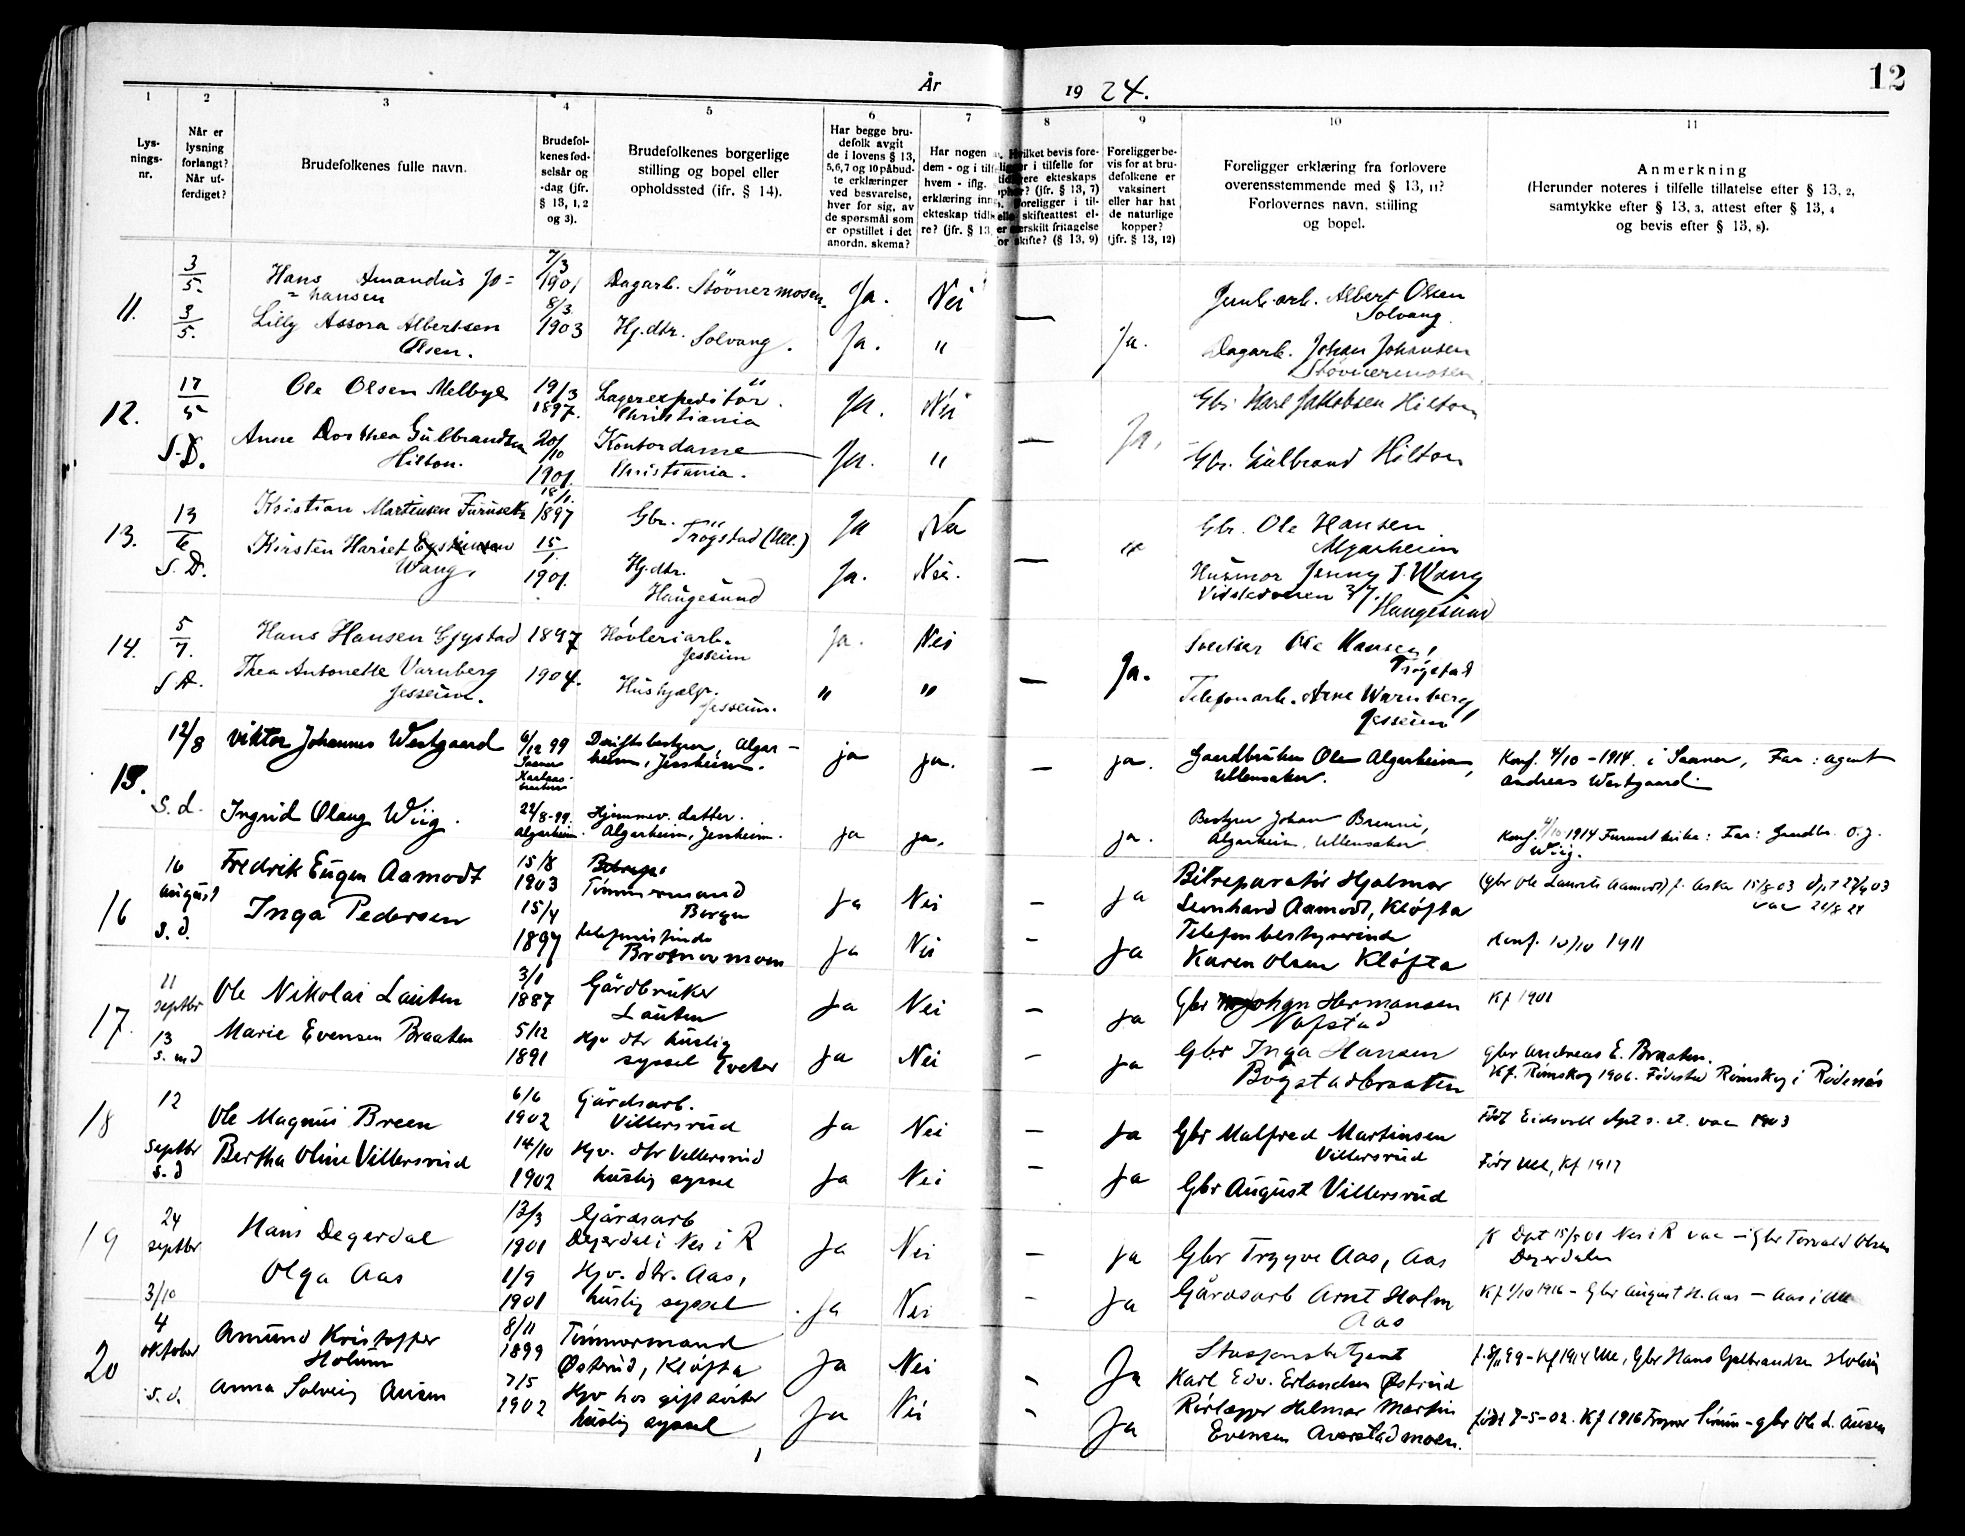 År 1924.
12
1 2 3 4 5 6 7 8 9 10 11
Lys-
nings-
nr.
Når er
lysning
forlangt?
Når ut-
ferdiget?
Brudefolkenes fulle navn.
Brudefol-
kenes fød-
selsår og
-dag (jfr.
§ 13, 1, 2
og 3).
Brudefolkenes borgerlige
stilling og bopel eller
opholdssted (ifr. § 14).
Har begge bru-
defolk avgit
de i lovens § 13,
5, 6, 7 og 10 påbud-
te erklæringer
ved besvarelse,
hver for sig, av
de spørsmål som
er opstillet i det
anordn. skema?
Har nogen
dem - og i
hvem - iflg.
erklæring
ekteskap
re? (jfr. § 13,
Hvilket bevis fore-
i tilfelle for
ekteskaps
(jfr. § 13, 7)
Foreligger i til-
skifteattest el-
særskilt fritagelse
for skifte? (§ 13, 9)
Foreligger be-
vis for at bru-
defolkene er
vaksinert
eller har hat
de naturlige
kopper?
(jfr. § 13, 12)
Foreligger erklæring fra forlovere
overensstemmende med § 13, 11?
Forlovernes navn, stilling
og bopel.
Anmerkning
(Herunder noteres i tilfelle tillatelse efter § 13, 2,
samtykke efter § 13, 3, attest efter § 13, 4
og bevis efter § 13, 8).
11. 3/5. Hans Amandus Jo=
=hansen 7/3 1901 Dagarb. Støvnermosen. Ja. Nei — Ja. Albert Olsen
Solvang.
3/5. Lilly Assora Albertsen
Olsen. 8/3 1903 Hj.dtr. Solvang. Ja. " Dagarb. Johan Johansen
Støvnermosen.
12. 17/5 Ole Olsen Melbye 19/3 1897. Lagerexpeditör.
Christiania Ja. Nei — Ja. Gbr. Karl Jakobsen Hilton
S.D. Anne Dorthea Gulbrandsen
Hilton. 20/10 1901. Kontordame
Christiania. Ja. " Gbr. Gulbrand Hilton
13. 13/6 Kristian Martinsen Furuseth 18/1. 1897 Gbr.
Trögstad (Ull.) Ja Nei — " Gbr. Ole Hansen
Algarheim
S.D. Kirsten Hariet
Wang. 15/1. 1901. Hj.dtr.
Haugesund Ja. Nei. Husmor Jenny J. Wang
37.
Haugesund
14. 5/7. Hans Hansen Gjystad 1897 Høvleriarb.
Jesseim Ja. Nei — Ja. Ole Hansen,
Trögstad
S.D. Thea Antonette Varnberg
Jesseim. 1904. Hushjælp.
Jesseim. " " Telefonarb. Arne Warnberg
Jesseim
15. 12/8 Viktor Johannes Westgaard 6/12 99
Driftsbestyrer, Algar-
heim, Jessheim. ja ja. — ja. Gaardbruker Ole Algarheim,
Ullensaker. Konf. 4/10 - 1914. i Saaner, Far: agent
Andreas Westgaard.
S.d. Ingrid Olaug Wiig. 22/8-99.
Algarheim. Hjemmev. datter.
Algarheim, Jessheim. ja ja. ja. Bestyrer Johan Brenni,
Algarheim, Ullensaker. Konf. 4/10 1914 Furuset kirke: Far: Gaardbr. O.J.
Wiig.
16 16
August Fredrik Eugen Aamodt 15/8
1903 Tømmermand
Borgen Ja Nei — Ja Bilreparatør Hjalmar
Leonhard Aamodt, Kløfta (Gbr Ole Laurits Aamodt) f. Aska 15/8 03 Døpt 27/9 03
vac 21/8 24
S.d. Inga Pedersen 15/4
1897 telefonistinde
Brotnovmoen Ja Nei — Ja Telefonbestyrerinde
Karen Olsen Kløfta Konf. 10/10 1911
17. 11
septbr Ole Nikolai Lauten 3/1
1887 Gårdbruker
Lauten Ja Nei — Ja Gbr Johan Hermansen
Nafstad Kf 1901
13
s. md Marie Evensen Braaten 5/12
1891 Hjv dtr huslig
syssel Tveter Ja Nei — Ja Gbr Inga Hansen
Bogstadbraaten Gbr Andreas E. Braaten.
Kf. Rømskog 1906. Fødested Rømskog i Rødenæs
18 12
septbr Ole Magnus Breen 6/6
1902 Gårdsarb.
Villersrud Ja Nei — Ja Gbr Malfred Martinsen
Villersrud Født Eidsvold døpt s. st. vac 1903
s.d Bertha Oline Villersrud 14/10
1902 Hjv. dtr Villersrud
huslig syssel Ja Nei — Ja Gbr August Villersrud Født Ull, Kf 1917
19 24
septbr Hans Degerdal 13/3
1901 Gårdsarb
Degerdal i Nes i R Ja Nei — Ja Gbr Trygve Aas, Aas Døpt 15/5 01 Nes i R vac - Gbr Torvald Olsen
Degerdalen
3/10 Olga Aas 1/9
1901 Hjv. dtr. Aas,
huslig syssel Ja Nei — Ja Gårdsarb Arnt Holm
Aas Kf 1/10 1916 - Gbr August H. Aas - Aas i Ull
20 4
oktober Amund Kristoffer
Holum 8/11
1899 Tømmermand
Østerud, Kløfta Ja Nei — Ja Stasjonsbetjent
Karl Edv. Erlandsen Østerud f. 8/11 99 - Kf 1914 Ull, Gbr Hans Gulbrandsen Holum
s.d. Anna Solveig Ausen 7/5
1902 Hjv hos gift søster
huslig syssel Ja Nei — Ja Rørlægger Helmar Martin
Evensen Averstadmoen. født 7-5-02. Kf 1916 - gbr Ole L. Ausen